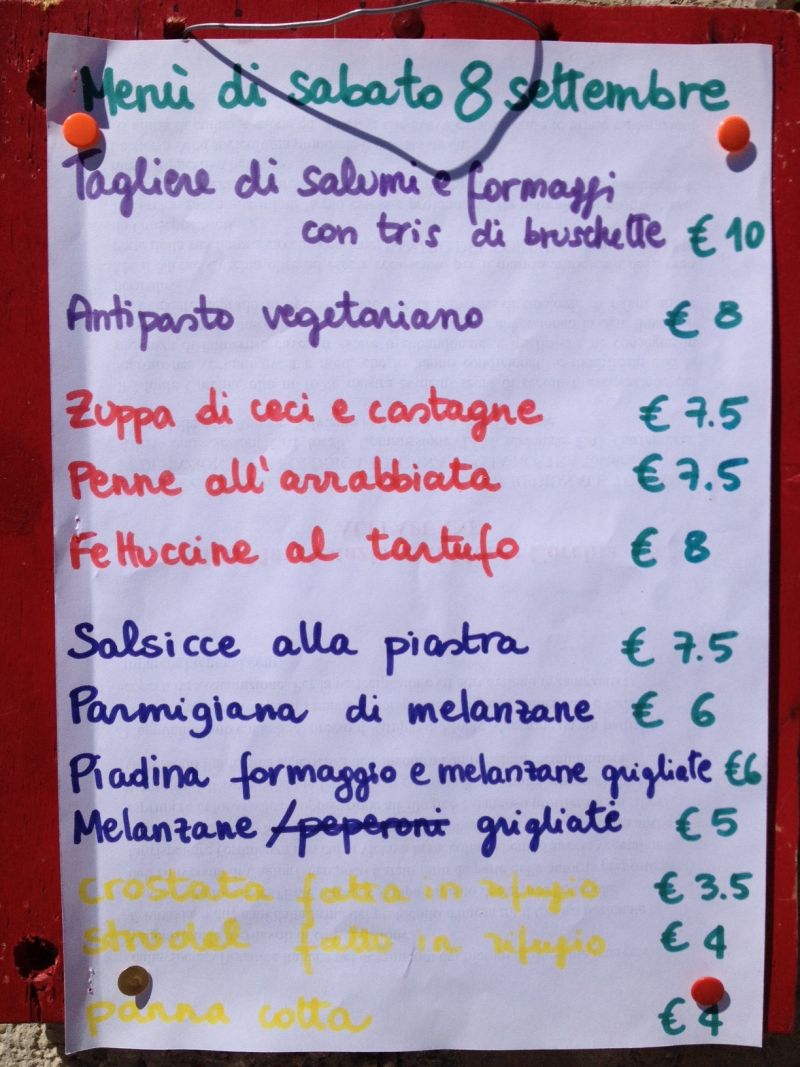 Menù di sabato 8 settembre
Tagliere di salumi e formaggi
con tris di bruschette € 10
Antipasto vegetariano € 8
Zuppa di ceci e castagne € 7.5
Penne all'arrabbiata € 7.5
Fettuccine al tartufo € 8
Salsicce alla piastra € 7.5
Parmigiana di melanzane € 6
Piadina formaggio e melanzane grigliate €6
Melanzane /peperoni grigliate € 5
crostata fatta in rifugio € 3.5
strudel fatto in rifugio € 4
panna cotta € 4